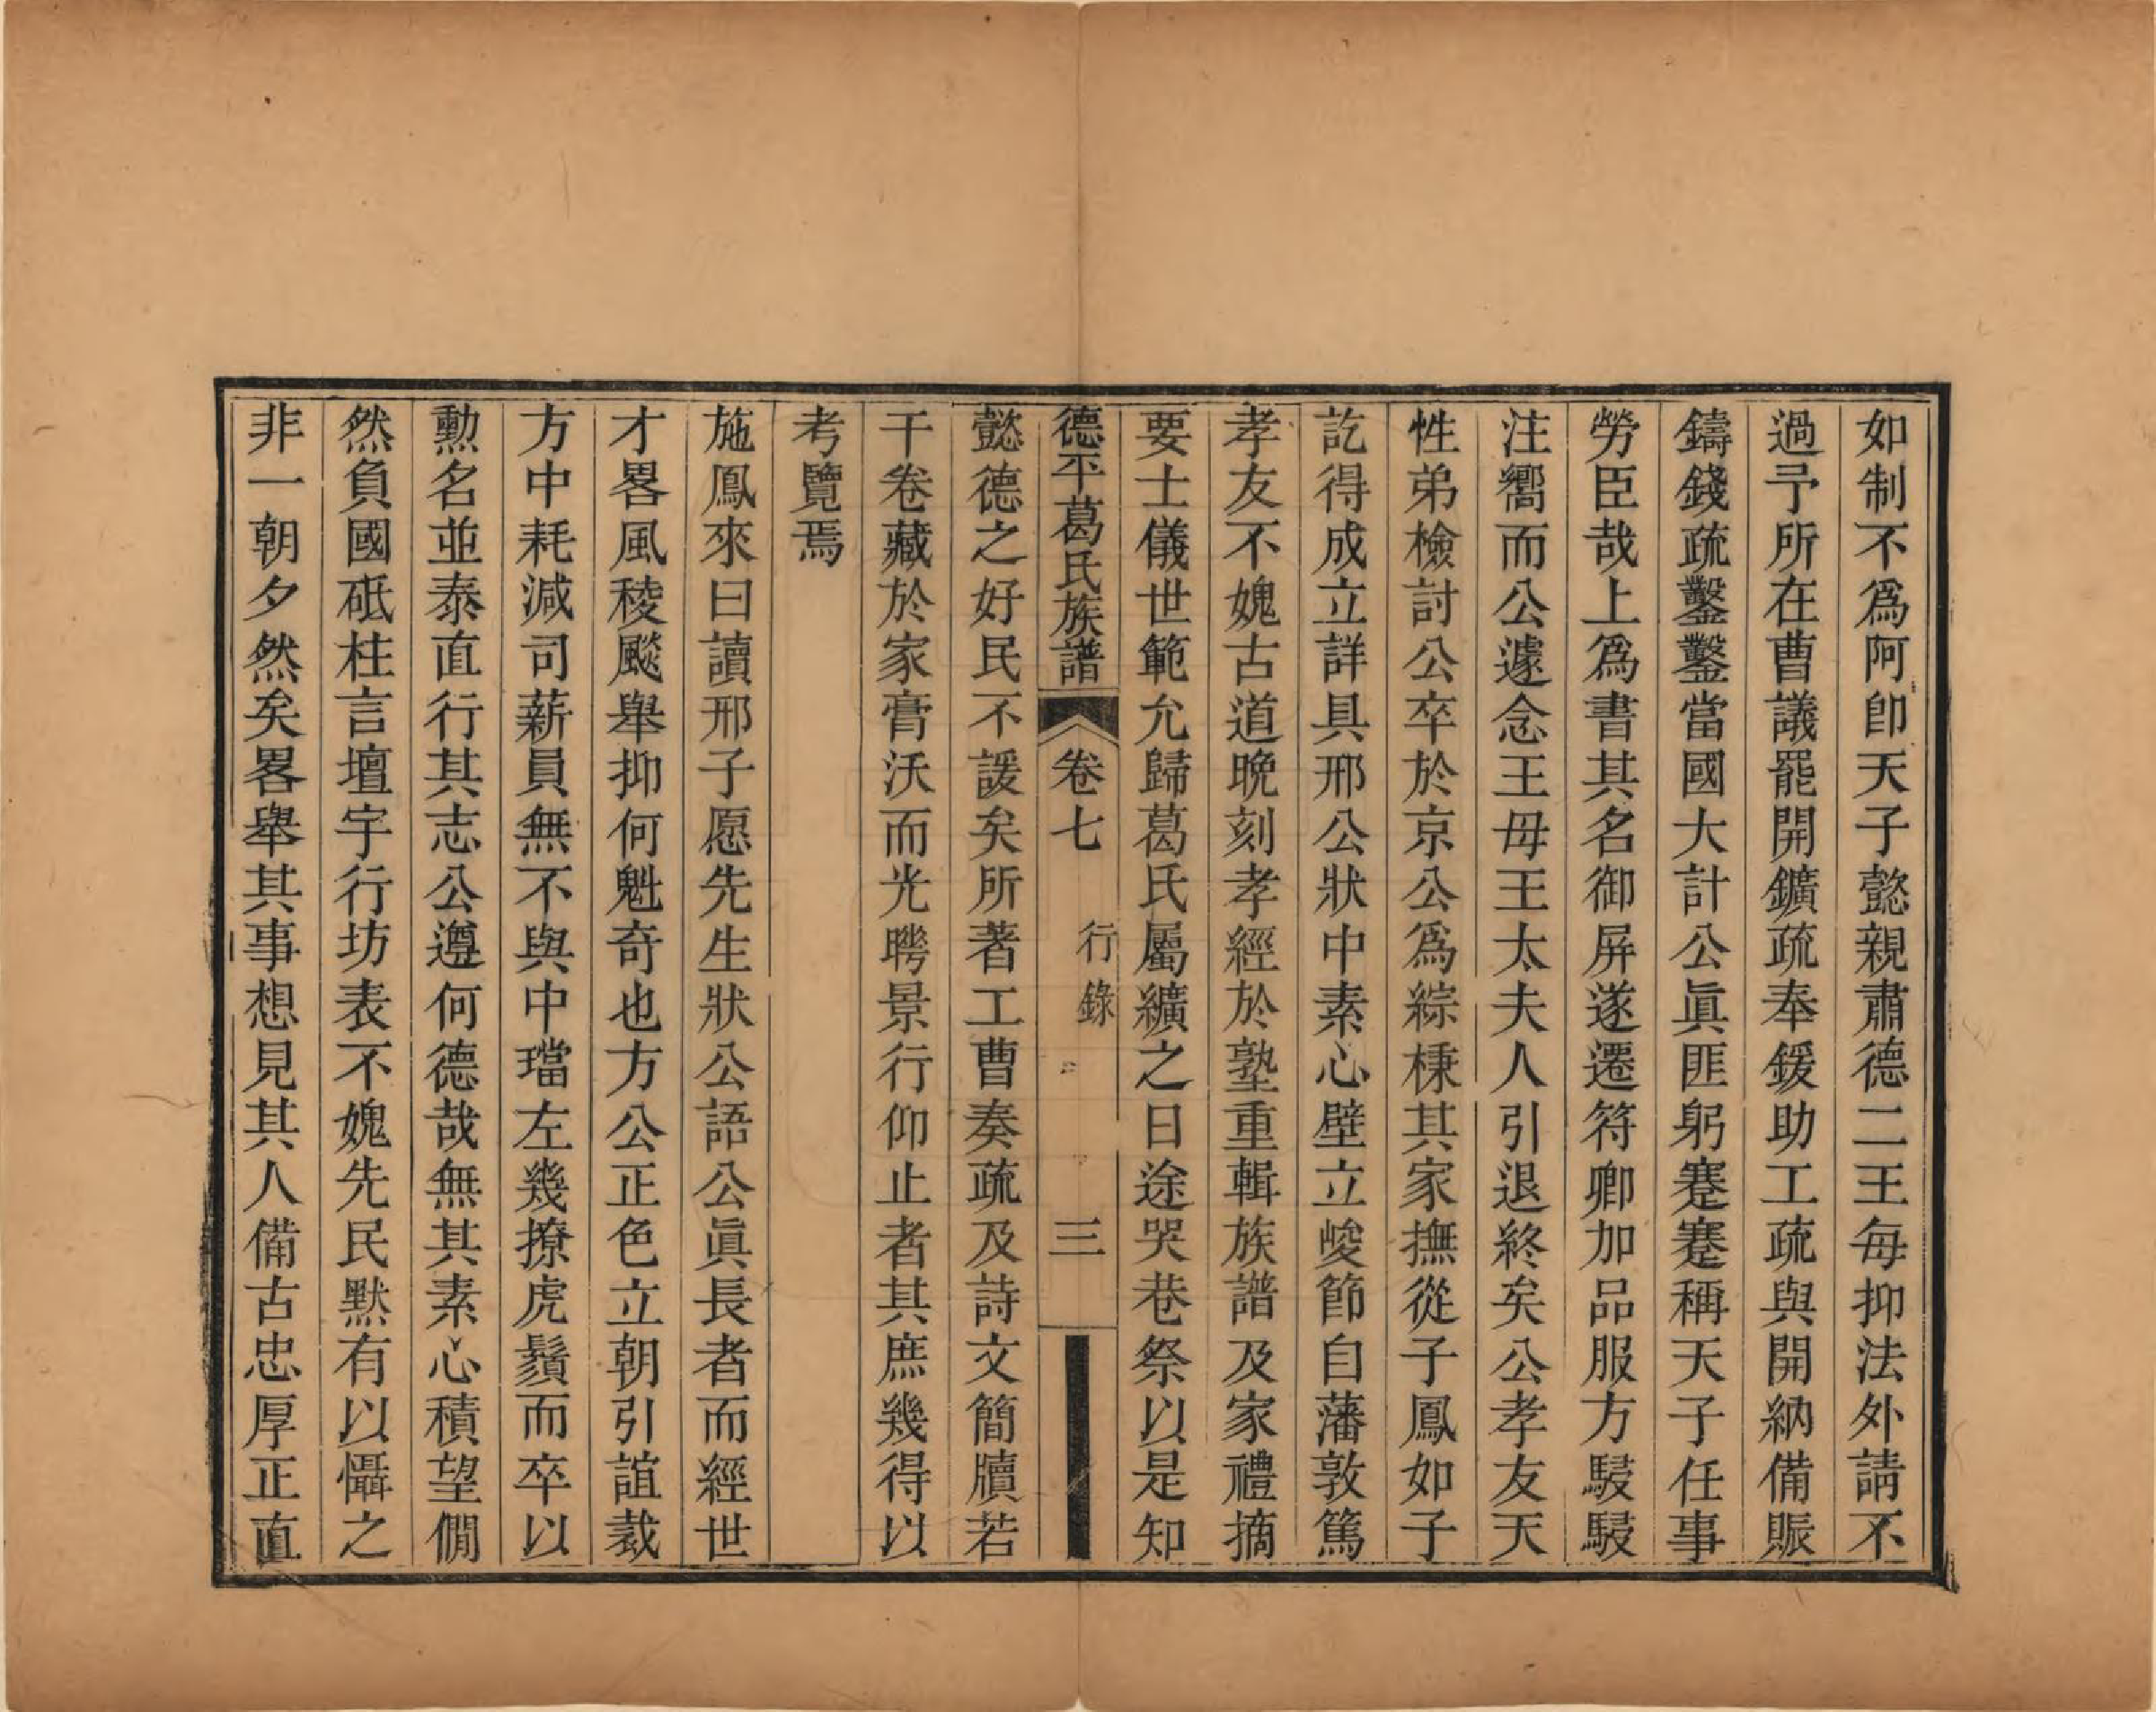 如制不爲阿卽天子懿親肅德二王每抑法外請不
過予所在曹議罷開鑛疏奉鍰助工疏與開納備賑
鑄錢疏鑿鑿當國大計公眞匪躬蹇蹇稱天子任事
勞臣哉上爲書其名御屏遂遷符卿加品服方駸駸
注嚮而公遽念王母王太夫人引退終矣公孝友天
性弟檢討公卒於京公爲綜槺其家撫從子鳳如子
訖得成立詳具邢公狀中素心壁立峻節自藩敦篤
孝友不媿古道晩刻孝經於塾重輯族譜及家禮摘
要士儀世範允歸葛氏屬纊之日途哭巷祭以是知
德平葛氏族譜 卷七 行錄 三
懿德之好民不諼矣所著工曹奏疏及詩文簡牘若
干卷藏於家膏沃而光聘景行仰止者其庶幾得以
考覽焉
施鳳來曰讀邢子愿先生狀公語公眞長者而經世
才畧風稜颷舉抑何魁奇也方公正色立朝引誼裁
方中耗減司薪員無不與中璫左幾撩虎鬚而卒以
勳名並泰直行其志公遵何德哉無其素心積望僩
然負國砥柱言壇宇行坊表不媿先民默有以懾之
非一朝夕然矣畧舉其事想見其人備古忠厚正直